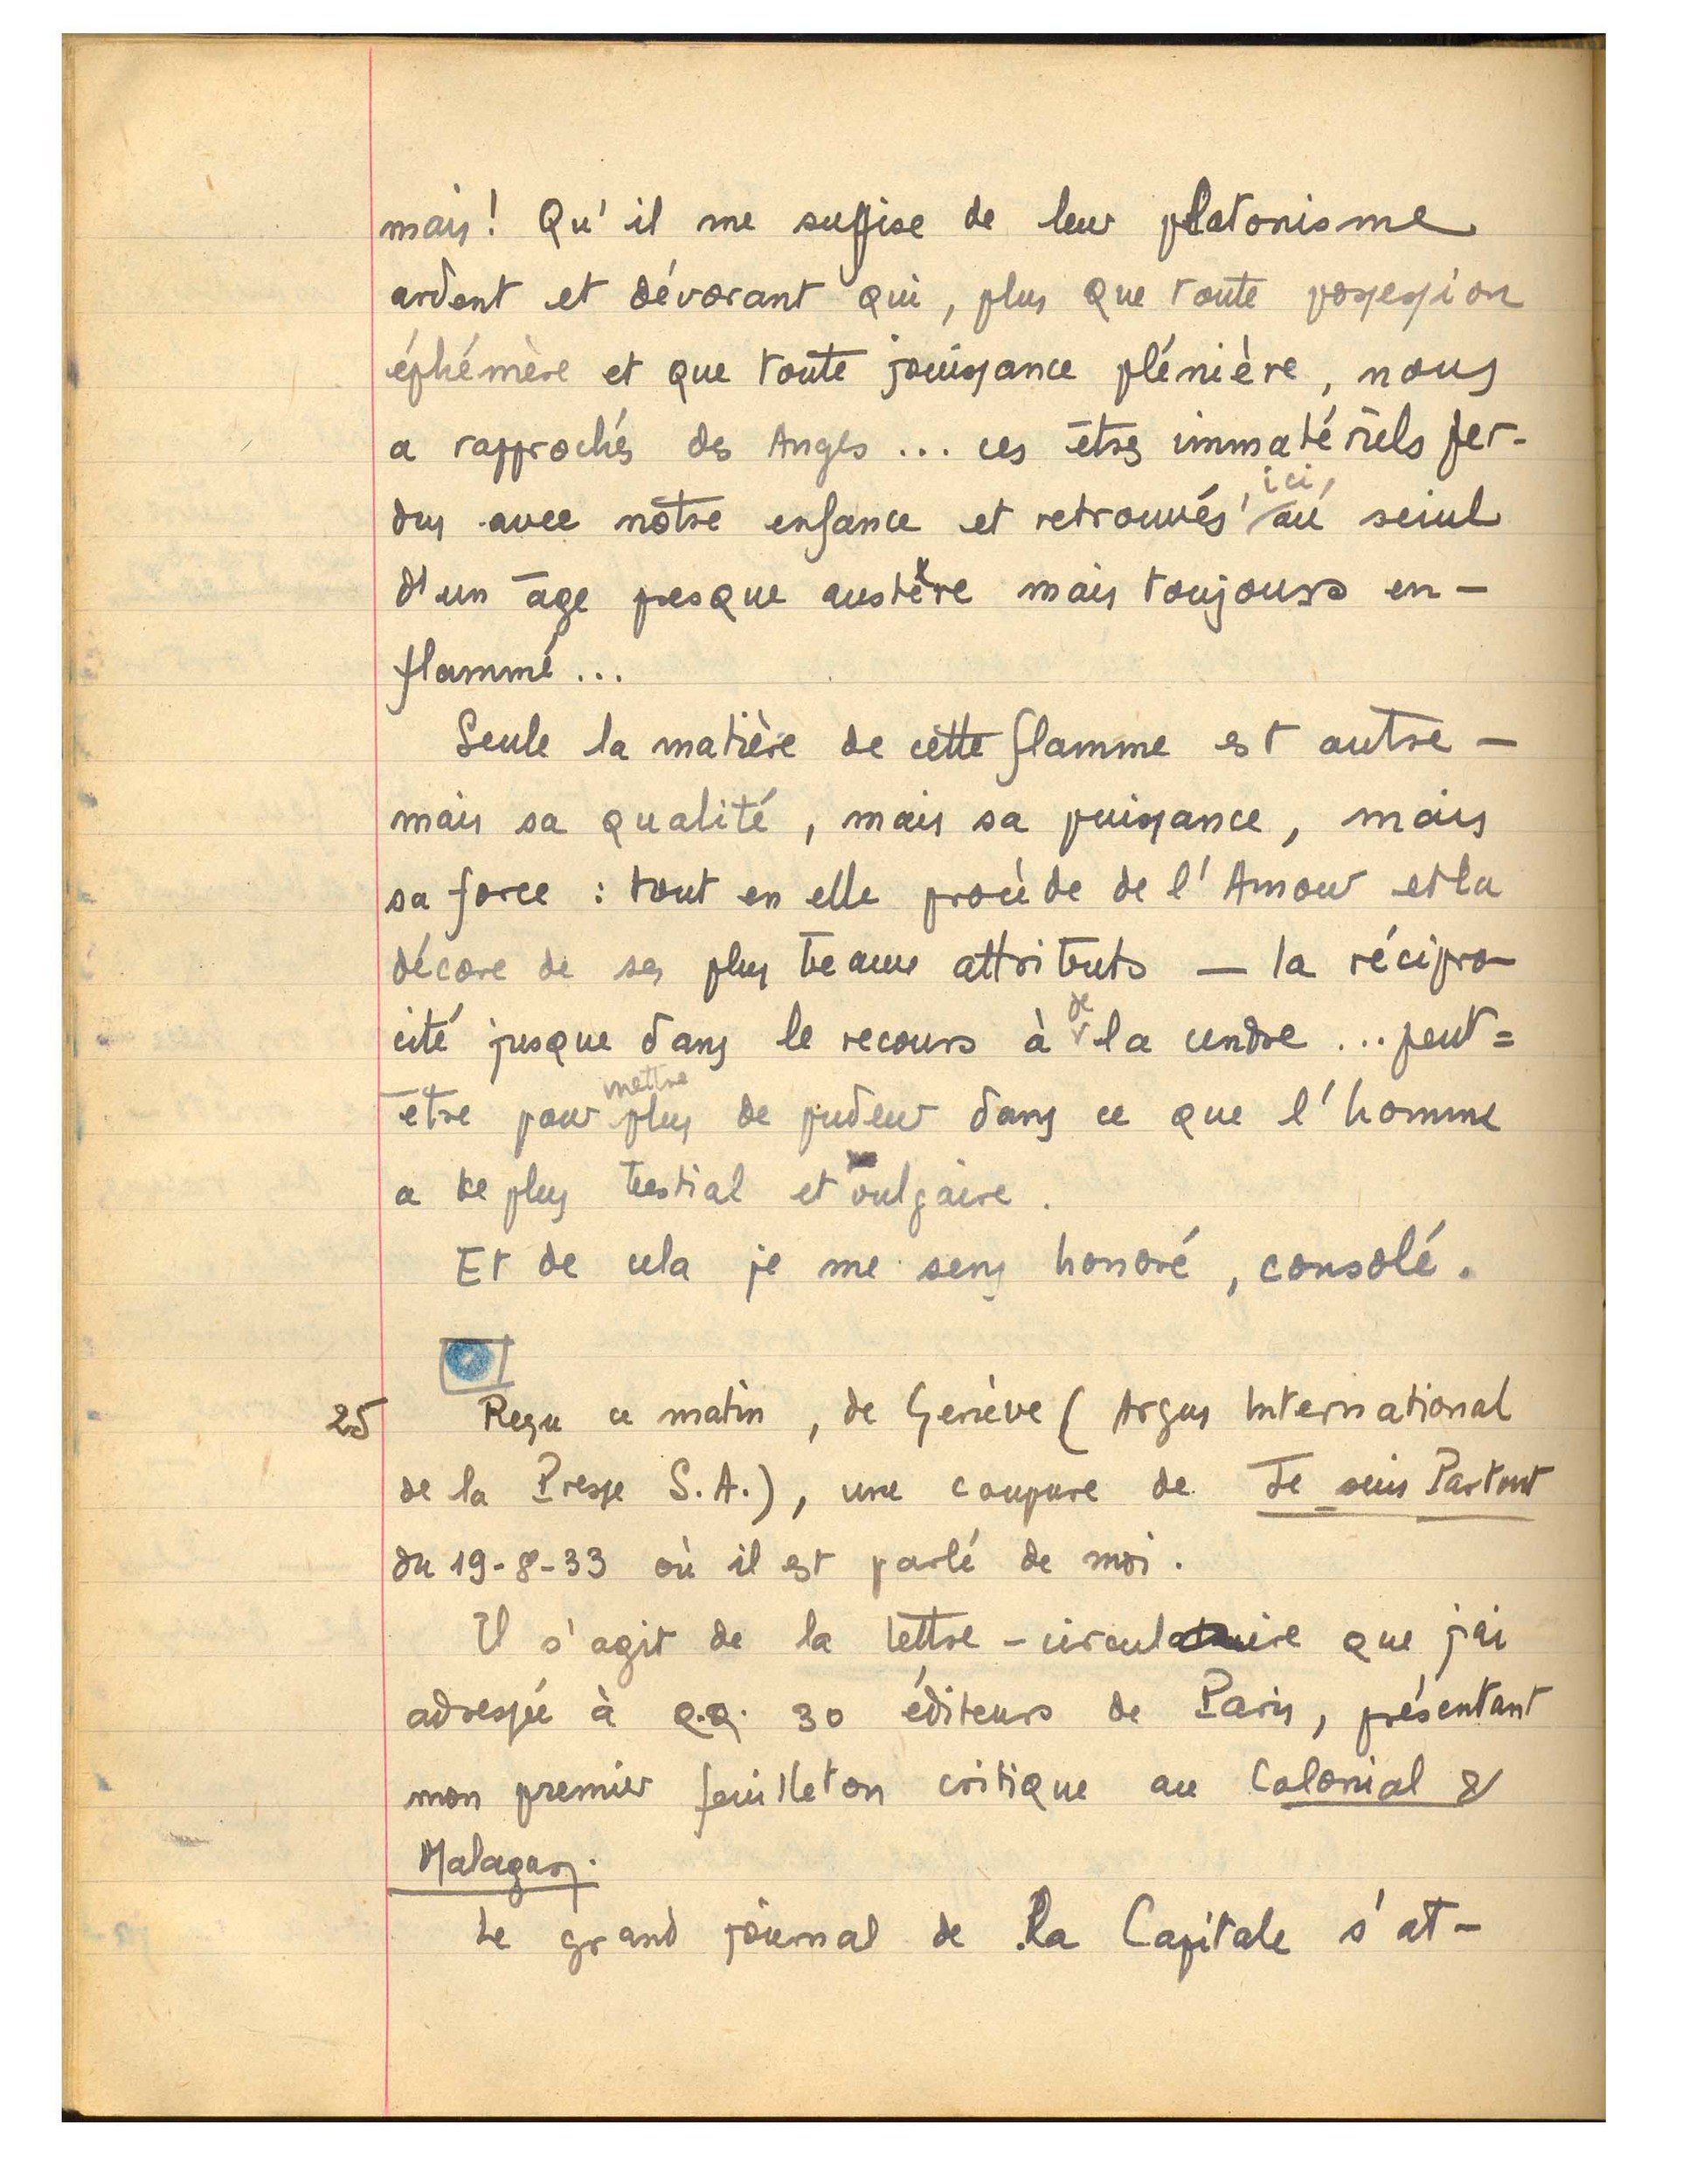 mais! Qu'il me suffise de leur platonisme
ardent et dévorant qui, plus que toute possession
éphémère et que toute jouissance plénière, nous
a rapprochés des Anges... ces êtres immatériels per-
dus avec nôtre enfance et retrouvés, ici, au seuil
d'un âge presque austère mais toujours en-
flammé...
Seule la matière de cette flamme est autre —
mais sa qualité, mais sa puissance, mais
sa force : tout en elle procède de l'Amour et la
décore de ses plus beaux attributs — la récipro-
cité jusque dans le recours à de la cendre ... peut=
être pour mettre plus de pudeur dans ce que l'homme
a de plus bestial et vulgaire.
Et de cela je me sens honoré, consolé.
25 Reçu ce matin, de Genève (Argus International
de la Presse S.A.), une coupure de Je suis Partout
du 19-8-33 où il est parlé de moi.
Il s'agit de la lettre-circulaire que j'ai
adressée à q.q. 30 éditeurs de Paris, présentant
mon premier feuilleton critique au Colonial &
Malagasy.
Le grand journal de la Capitale s'at-